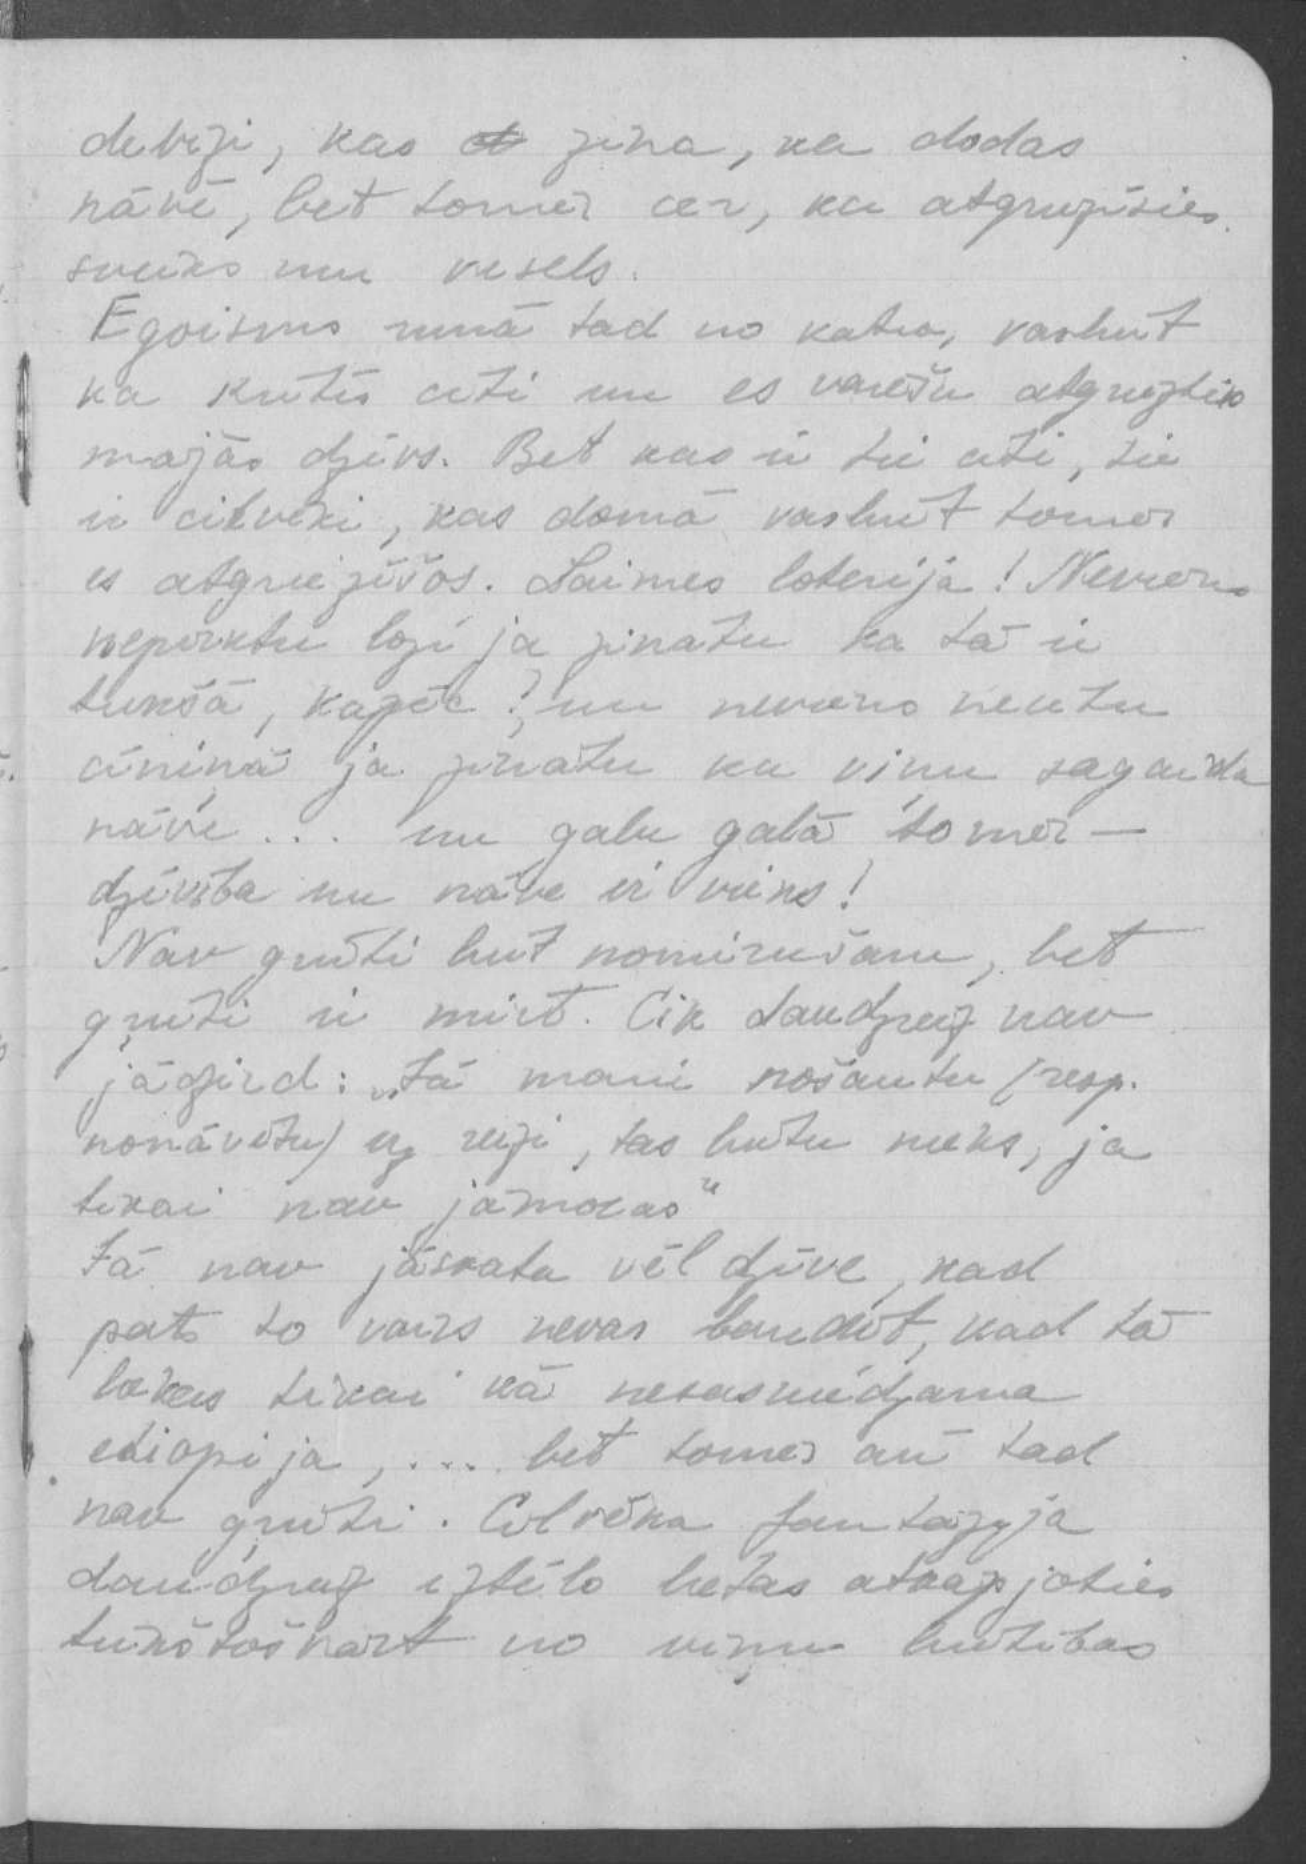 devīzi, kas zina, ka dodas
nāvē, bet tomēr cer, ka atgriezīsies
sveiks un vesels.
Egoisms runā tad no katra, varbut
ka kritīs citi un es varēšu atgriezties
mājās dzīvs. Bet kas ir tie citi, tie
ir cilvēki, kas domā varbut tomēr
es atgriezīšos. Laimes loterija! Neviens
nepirktu lozi ja zinātu ka tā ir
tukšā, kāpēc? un neviens neietu
cīniņā ja zinātu ka viņu sagaida
nāve ... un galu galā tomēr —
dzīvība un nāve ir viens!
Nav grūti but nomirušam, bet
grūti ir mirt. Cik daudzreiz nav
jādzird: „Ja mani nošautu (resp.
nonāvētu) uz reizi, tas butu nieks, ja
tikai nav jāmokas"
Ja nav jāskata vēl dzīve, kad
pats to vairs nevar baudīt, kad tā
liekas tikai kā nesasniedzama
etiopija, .... bet tomēr arī tad
nav grūti. Cilvēka fantāzija
daudzreiz iztēlo lietas atkāpjoties
tūkstoškārt no viņu butības